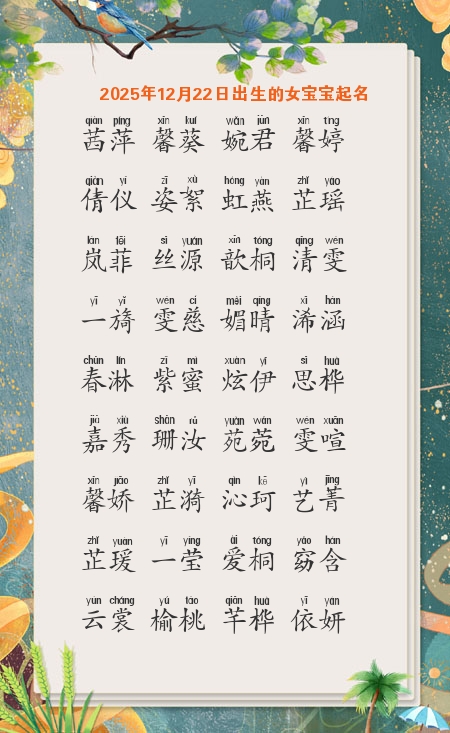 2025年12月22日出生的女宝宝起名
qiàn píng xīn kuí wǎn jūn xīn tíng
茜萍 馨葵 婉君 馨婷
qiàn yí zī xù hóng yàn zhǐ yáo
倩仪 姿絮 虹燕 芷瑶
lán fēi sī yuán xīn tóng qīng wén
岚菲 丝源 歆桐 清雯
yī yǐ wén cí mèi qíng xī hán
一旖 雯慈 媚晴 浠涵
chūn lín zǐ mì xuàn yī sī huà
春淋 紫蜜 炫伊 思桦
jiā xiù shān rǔ yuàn wǎn wén xuān
嘉秀 珊汝 苑菀 雯喧
xīn jiāo zhǐ yī qìn kē yì jīng
馨娇 芷漪 沁珂 艺菁
zhǐ yuàn yī yíng ài tóng yǎo hán
芷瑗 一莹 爱桐 窈含
yún cháng yú táo qiān huà yī yán
云裳 榆桃 芊桦 依妍